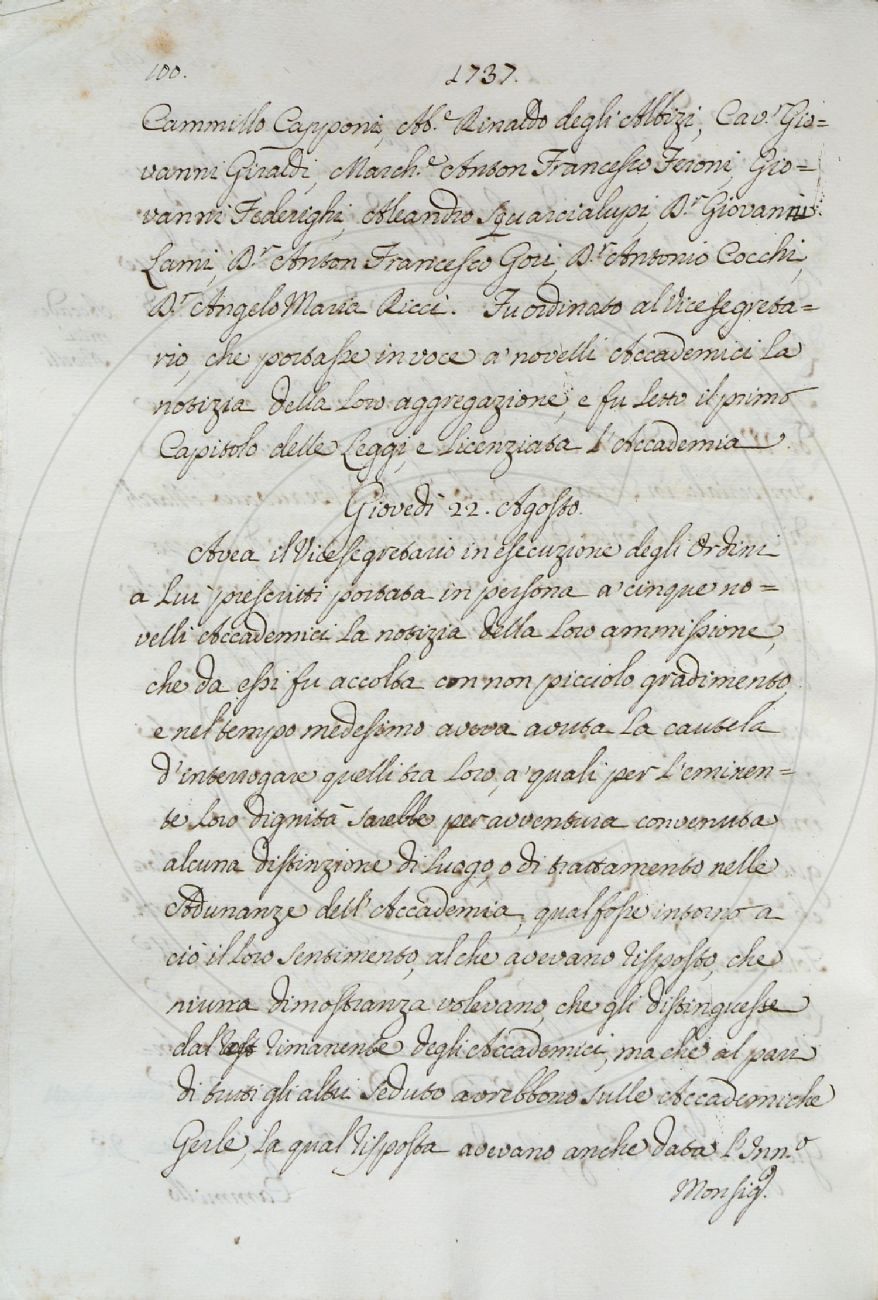 100.
1737.
Cammillo Capponi, Ab.e Rinaldo degli Albizi, Cav.r Gio=
vanni Giraldi, March.e Anton Francesco Feroni, Gio=
vanni Federighi, Aleandro Squarcialupi, D.r Giovanni
Lami, D.r Anton Francesco Gori, D.r Antonio Cocchi,
D.r Angelo Maria Ricci. Fu ordinato al Vicesegreta=
rio, che portasse in voce a' novelli Accademici la
notizia della loro aggregazione, e fu letto il primo
Capitolo delle Leggi, e licenziata l'Accademia.
Giovedì 22. Agosto.
Avea il Vicesegretario in esecuzione degli Ordini
a lui prescritti portata in persona a' cinque no=
velli Accademici la notizia della loro ammissione,
che da essi fu accolta con non picciolo gradimento,
e nel tempo medesimo aveva avuta la cautela
d'interrogare quelli tra loro, a' quali per l'eminen=
te loro dignità sarebbe per avventura convenuta
alcuna distinzione di luogo, o di trattamento nelle
Adunanze dell'Accademia, qual fosse intorno a
ciò il loro sentimento, al che avevano risposto, che
niuna dimostranza volevano, che gli distinguesse
dal rimanente degli Accademici, ma che al pari
di tutti gli altri seduto avrebbono sulle Accademiche
Gerle, la qual risposta avevano anche data l'Inn.o
Monsig.r